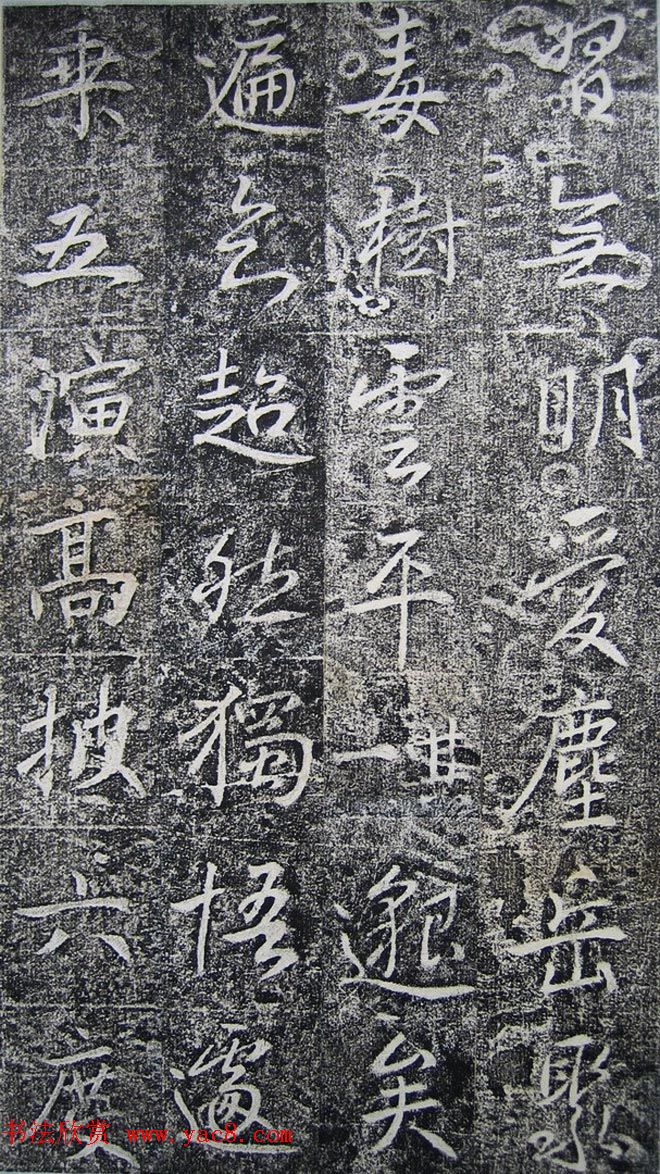 習無明愛塵岳聚
毒樹雲平其一邈矣
遍知超然獨悟遽
乘五演高披六度
书法欣赏 www.yac8.com